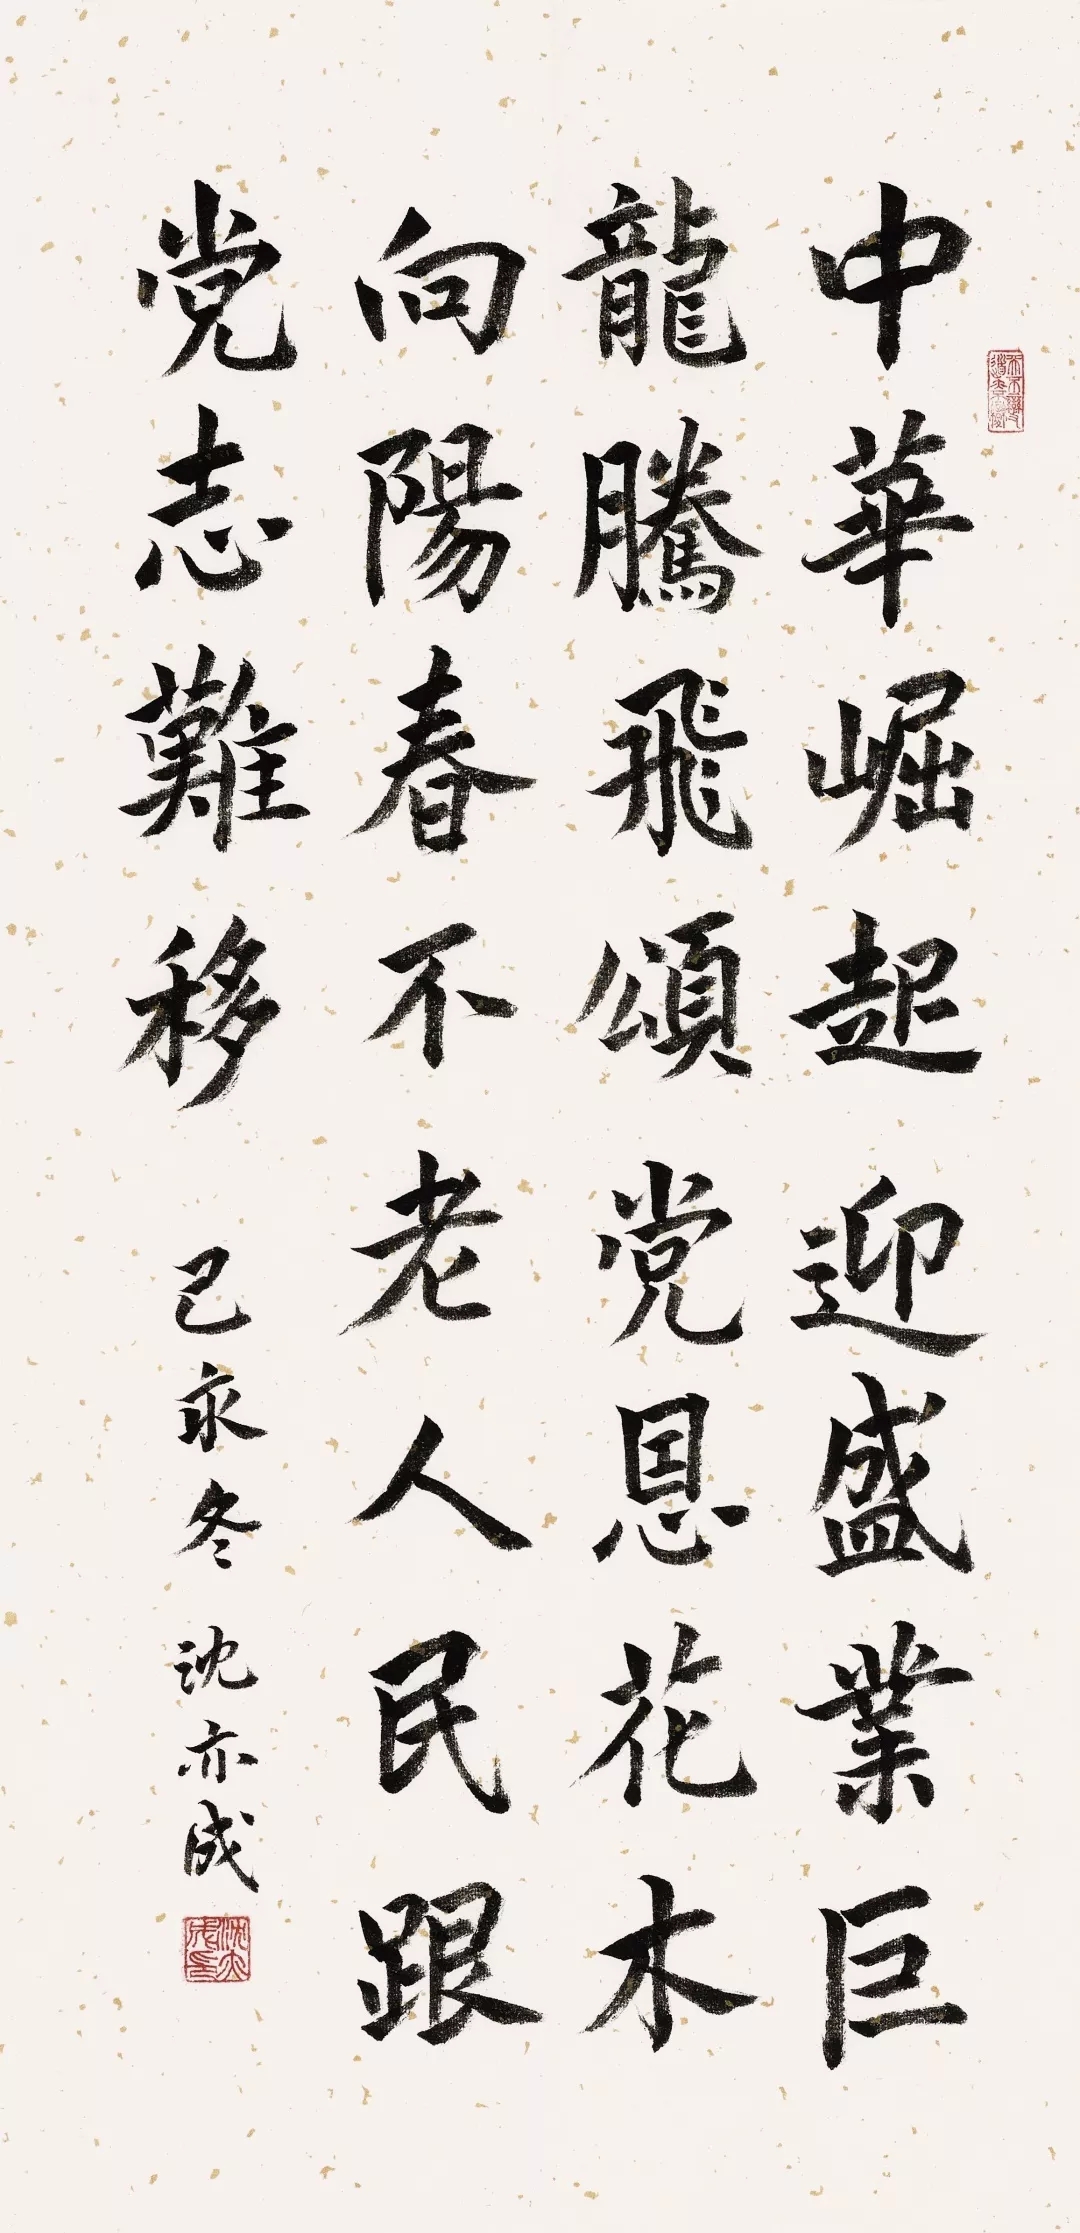 中華崛起迎盛業巨
龍騰飛頌党恩花木
向陽春不老人民跟
党志難移 己亥冬 沈亦成
沈亦成印